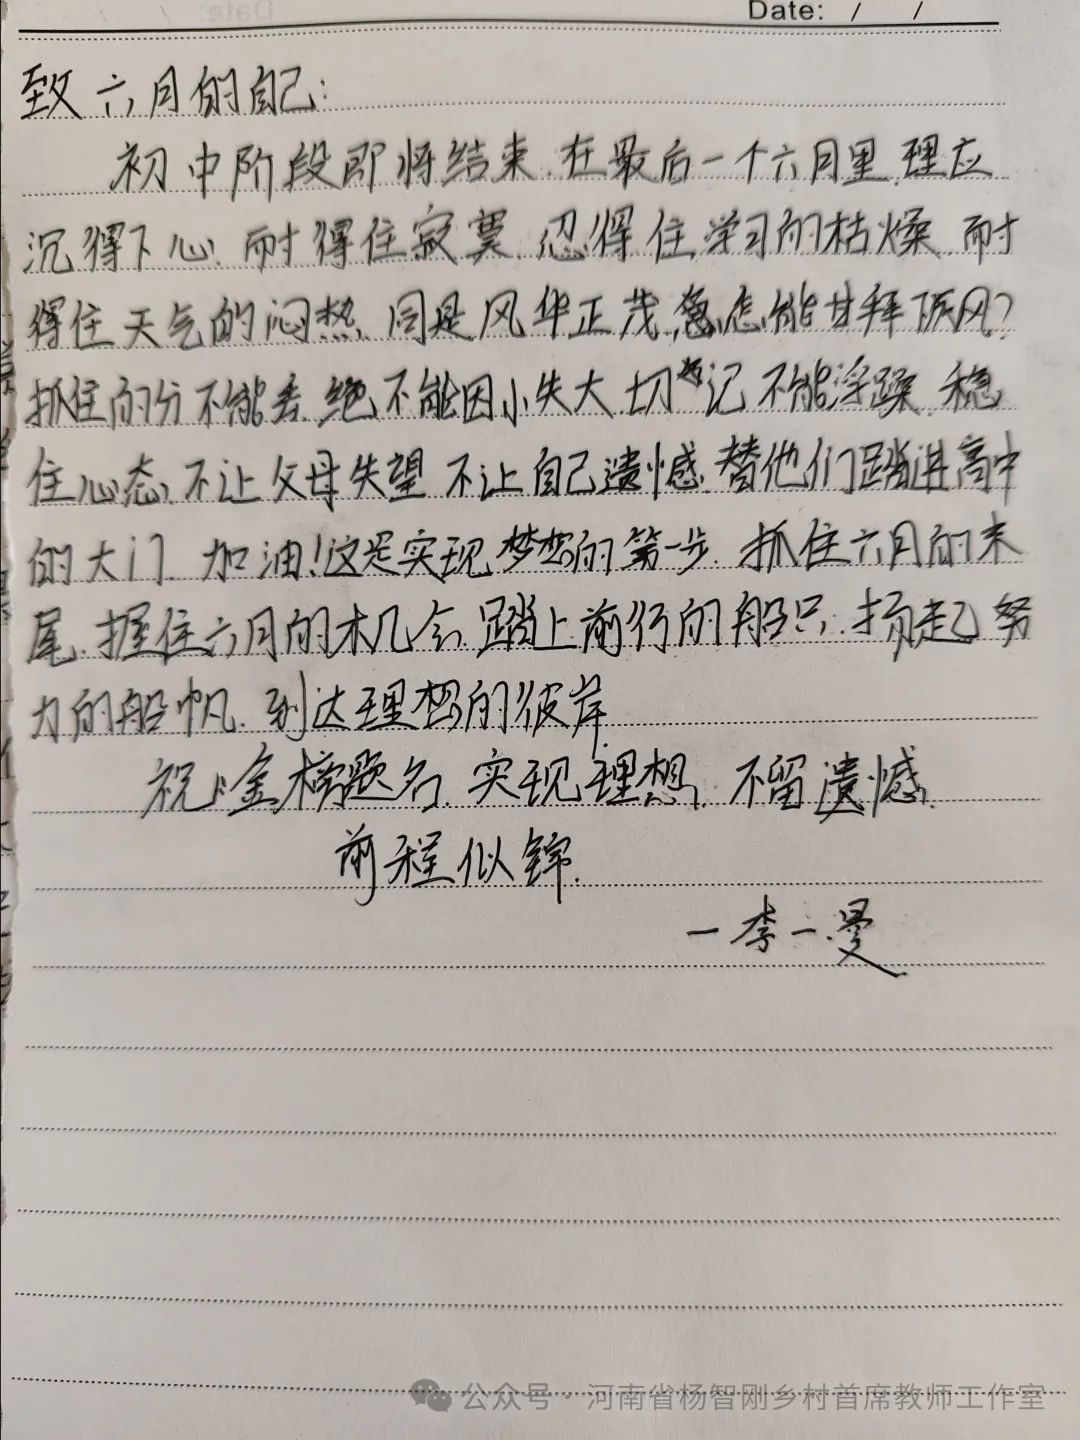 Date: / /
致六月的自己:
初中阶段即将结束.在最后一个六月里.理应
沉得下心、耐得住寂寞.忍得住学习的枯燥.耐
得住天气的闷热、同是风华正茂.怎能甘拜下风?
抓住的分不能丢.绝不能因小失大.切记不能浮躁.稳
住心态、不让父母失望.不让自己遗憾.替他们踏进高中
的大门.加油!这是实现梦想的第一步.抓住六月的末
尾.握住六月的机会.踏上前行的船只.扬起努
力的船帆.到达理想的彼岸.
祝:金榜题名.实现理想.不留遗憾.
前程似锦.
一李一曼
公众号·河南省杨智刚乡村首席教师工作室